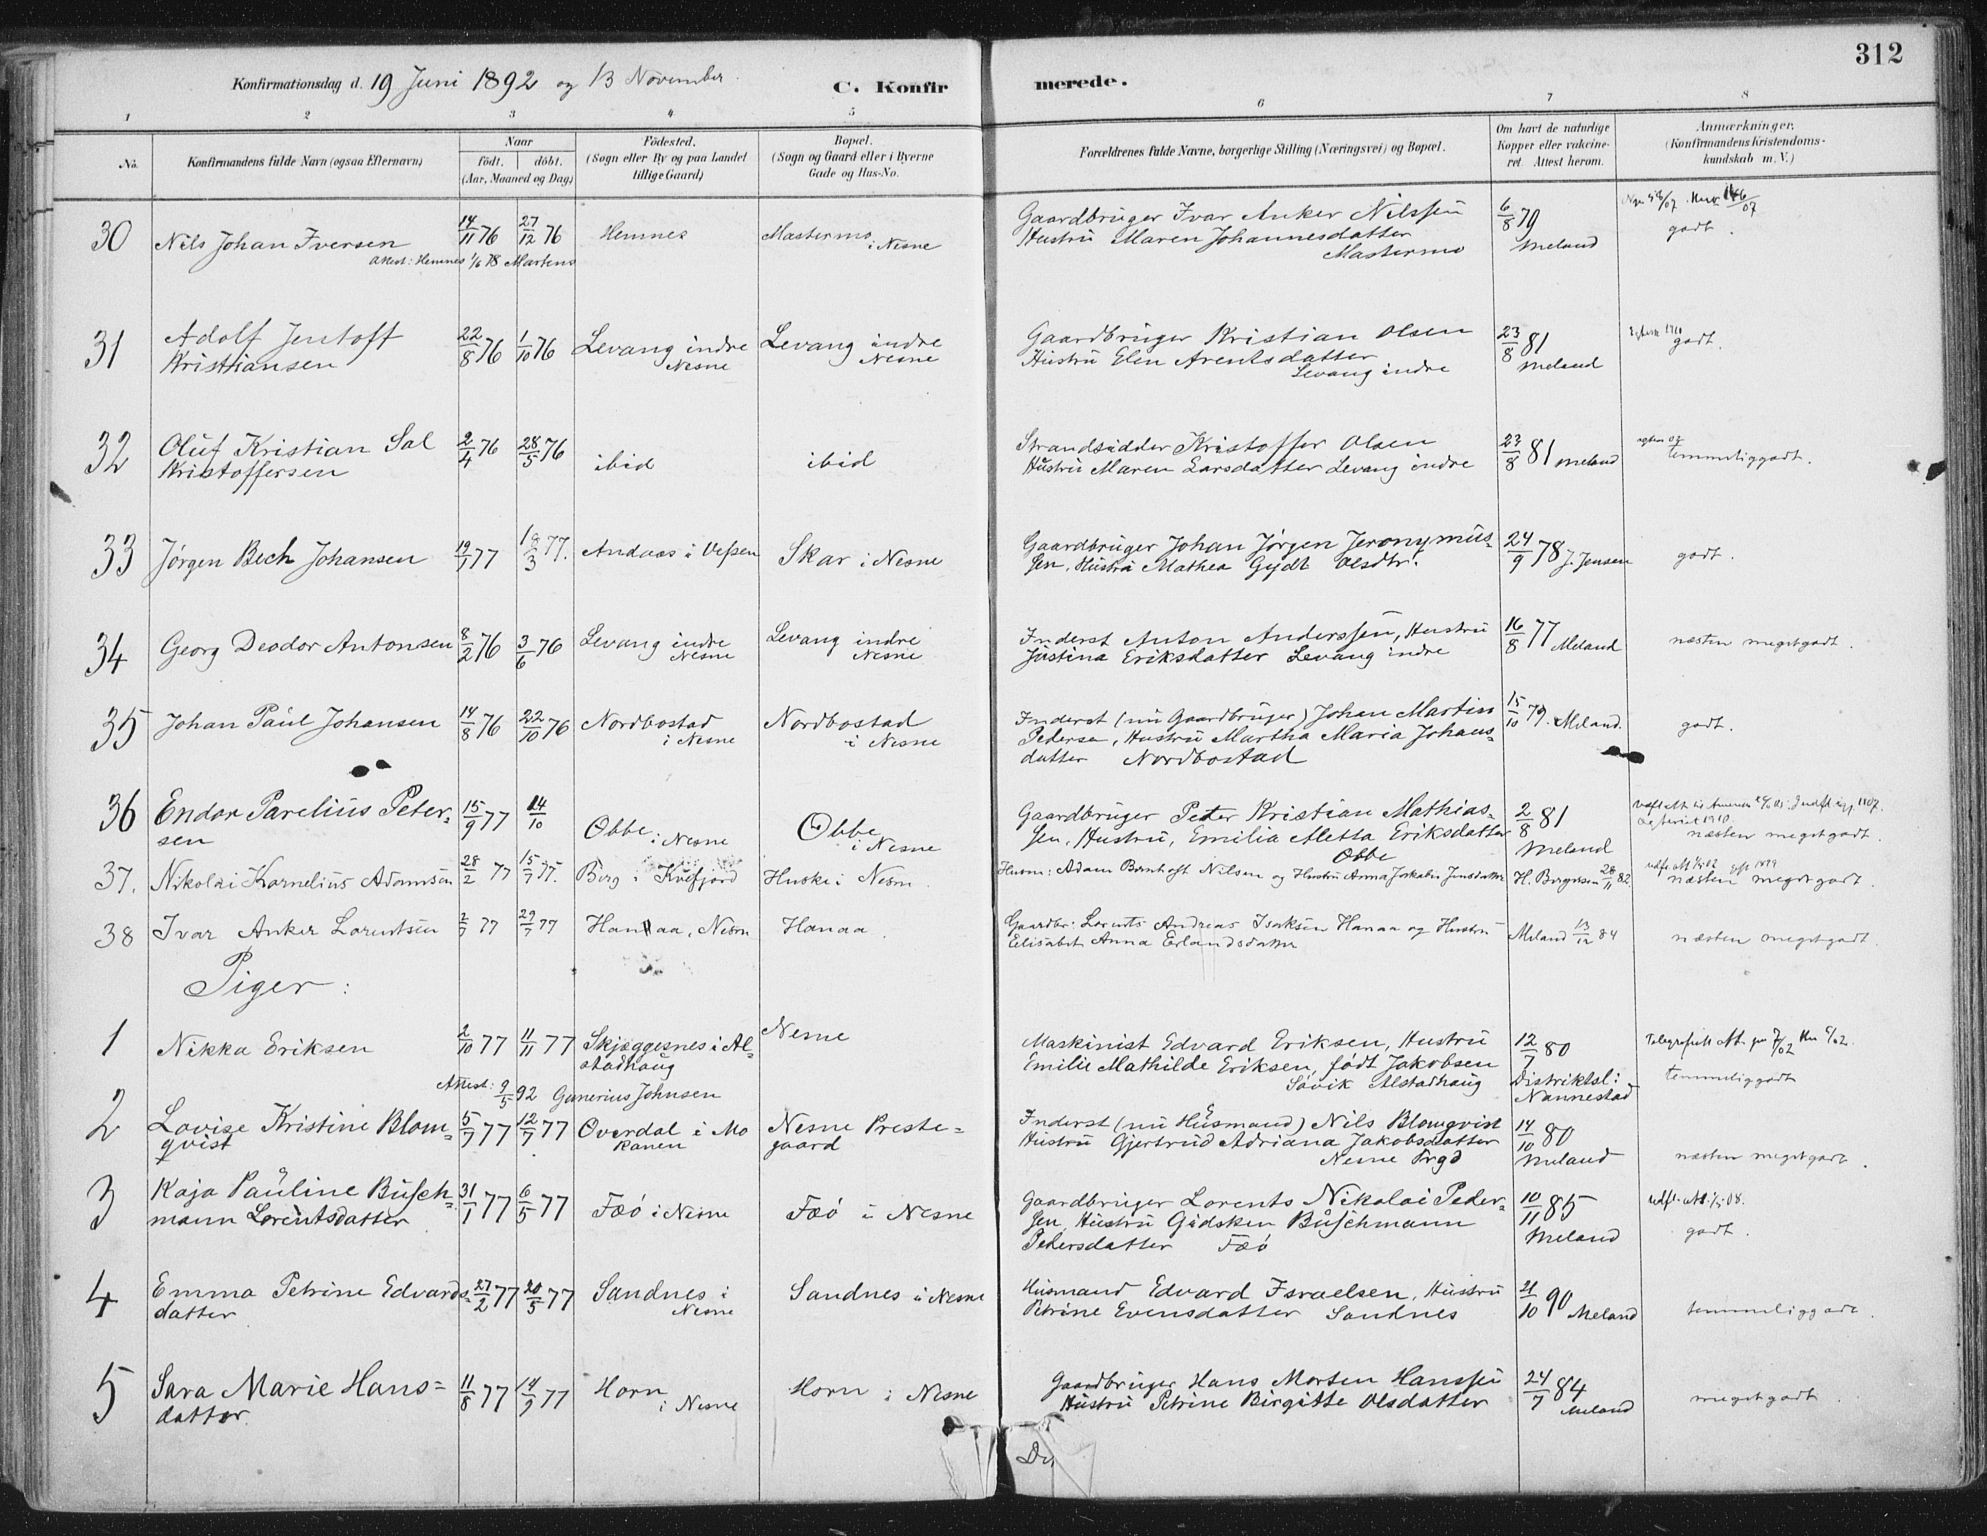 312
Konfirmationsdag d. 19 Juni 1892 og 13 November.
C. Konfirmerede.
1 2 3 4 5 6 7 8
No.
Konfirmandens fulde Navn (ogsaa Efternavn)
Naar
født. døbt.
(Aar, Maaned og Dag)
Fødested.
(Sogn eller By og paa Landet
tillige Gaard)
Bopæl.
(Sogn og Gaard eller i Byerne
Gade og Hus-No.
Forældrenes fulde Navne, borgerlige Stilling (Næringsvei) og Bopæl.
Om havt de naturlige
Kopper eller vakcine-
ret. Attest herom.
Anmærkninger.
(Konfirmandens Kristendoms-
kundskab m. V.)
30 Nils Johan Iversen 14/11 76 27/12 76 Hemnes Mastermo i Nesne
Attest: Hemnes 1/6 78 Martens
Gaardbruger Ivar Anker Nilssen
Hustru Maren Johannesdatter
Mastermo
6/8 79
Meland
godt.
31 Adolf Jentoft
Kristiansen
22/8 76 1/10 76 Levang indre
Nesne
Levang indre
Nesne
Gaardbruger Kristian Olsen
Hustru Elen Arentsdatter
Levang indre
23/8 81
Meland
godt.
32 Oluf Kristian Sal
Kristoffersen
2/4 76 28/5 76 ibid ibid
Strandsidder Kristoffer Olsen
Hustru Maren Larsdatter Levang indre
23/8 81 Meland
temmeliggodt.
33 Jørgen Bech Johansen 19/1 77 18/3 77. Andaas i Vefsen Skar i Nesne
Gaardbruger Johan Jørgen Jeronymus-
sen, Hustru Mathea Gydt Olsdtr.
24/9 78 J. Jensen
godt.
34 Georg Deodor Antonsen 8/2 76 3/6 76 Levang indre
Nesne
Levang indre
Nesne
Inderst Anton Anderssen, Hustru
Justina Eriksdatter Levang indre
16/8 77 Meland
næsten megetgodt.
35 Johan Paul Johansen 14/8 76 22/10 76 Nordbostad
i Nesne
Nordbostad
i Nesne
Inderst (nu Gaardbruger) Johan Martin
Pedersen, Hustru Martha Maria Johans-
datter Nordbostad
15/10 79. Meland.
godt.
36 Endor Parelius Peter-
sen
15/9 77 14/10 Obbe
i Nesne
Obbe
i Nesne
Gaardbruger Peter Kristian Mathias-
sen, Hustru, Emilia Aletta Eriksdatter
Obbe
2/8 81
Meland
næsten megetgodt.
37. Nikolai Kornelius Adamsen 28/2 77 15/7 77. Berg i Kvefjord Huske i Nesn.
Husm: Adam Bernhoft Nilsen og Hustru Anna Jakobin Jensdatter
H. Bergersen 28/11 82.
næsten megetgodt.
38 Ivar Anker Lorentsen 2/7 77 29/7 77 Hanaa, Nesn Hanaa.
Gaardbr: Lorents Andreas Isaksen Hanaa og Hustru
Elisabet Anna Erlandsdatter
Meland 13/12 84
næsten megetgodt.
Piger:
1 Nikka Eriksen 2/10 77 11/11 77 Skjæggesnes i Al-
stadhaug
Nesne
Attest: 9/5 92 Gunerius Johnsen
Maskinist Edvard Eriksen, Hustru
Emilie Mathilde Eriksen, født Jakobsen
Søvik Alstadhaug
12/7 80
Distriktsl:
Nannestad
temmeliggodt
2 Lovise Kristine Blom-
qvist
5/7 77 12/7 77 Overdal i Mo
Ranen
Nesne Preste-
gaard
Inderst (nu Husmand) Nils Blomqvist
Hustru Gjertrud Adriana Jakobsdatter
Nesne Prgd
14/10 80
Meland
næsten megetgodt.
3 Kaja Pauline Busch-
mann Lorentsdatter
31/1 77 6/5 77 Fæø i Nesne Fæø i Nesne
Gaardbruger Lorents Nikolai Peder-
sen, Hustru Gidsken Buschmann
Pedersdatter Fæø
10/11 85
Meland
godt.
4 Emma Petrine Edvards-
datter
27/2 77 20/5 77 Sandnes i
Nesne
Sandnes i Nesne
Husmand Edvard Israelsen, Hustru
Petrine Evensdatter Sandnes
21/10 90 Meland
temmeliggodt
5 Sara Marie Hans-
datter.
11/8 77 14/9 77 Horn
i Nesne
Horn i Nesne
Gaardbruger Hans Morten Hanssen
Hustru Petrine Birgitte Olsdatter
24/7 84
Meland
megetgodt